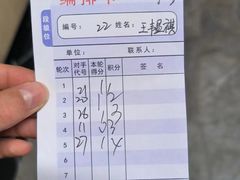 段级位
编号： 22 姓名： 王韫祺
单位： 联系人：
轮次 对手代号 本轮得分 积分 签名
1 21 1 1
2 20 1 2
3 26 1 3
4 11 0 3
5 27 1 4